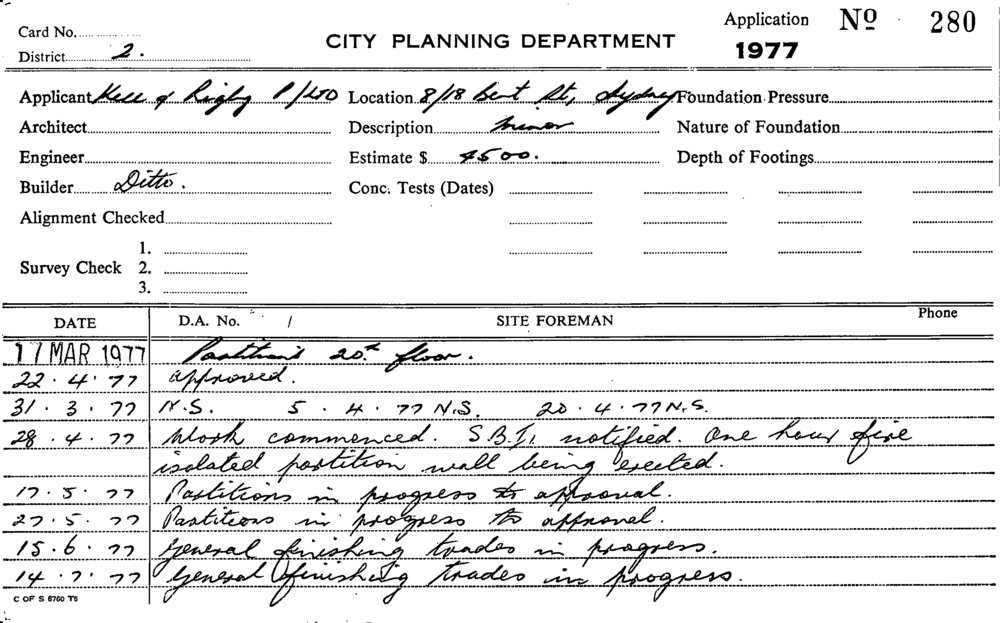 Card No.
District 2.
CITY PLANNING DEPARTMENT
Application No 280
1977
Applicant Kell & Rigby P/LTD Location 8/18 Bent St, Sydney Foundation Pressure
Architect Description minor Nature of Foundation
Engineer Estimate $ 4500. Depth of Footings
Builder Ditto. Conc. Tests (Dates)
Alignment Checked
1.
Survey Check 2.
3.
DATE D.A. No. / SITE FOREMAN Phone
17 MAR 1977 Partitions 20th floor.
22.4.77 approved.
31.3.77 N.S. 5.4.77 N.S. 20.4.77 N.S.
28.4.77 Work commenced. S.B.I. notified. One hour fire
isolated partition wall being erected.
17.5.77 Partitions in progress to approval.
27.5.77 Partitions in progress to approval.
15.6.77 General finishing trades in progress.
14.7.77 General finishing trades in progress.
C OF S 6760 T6